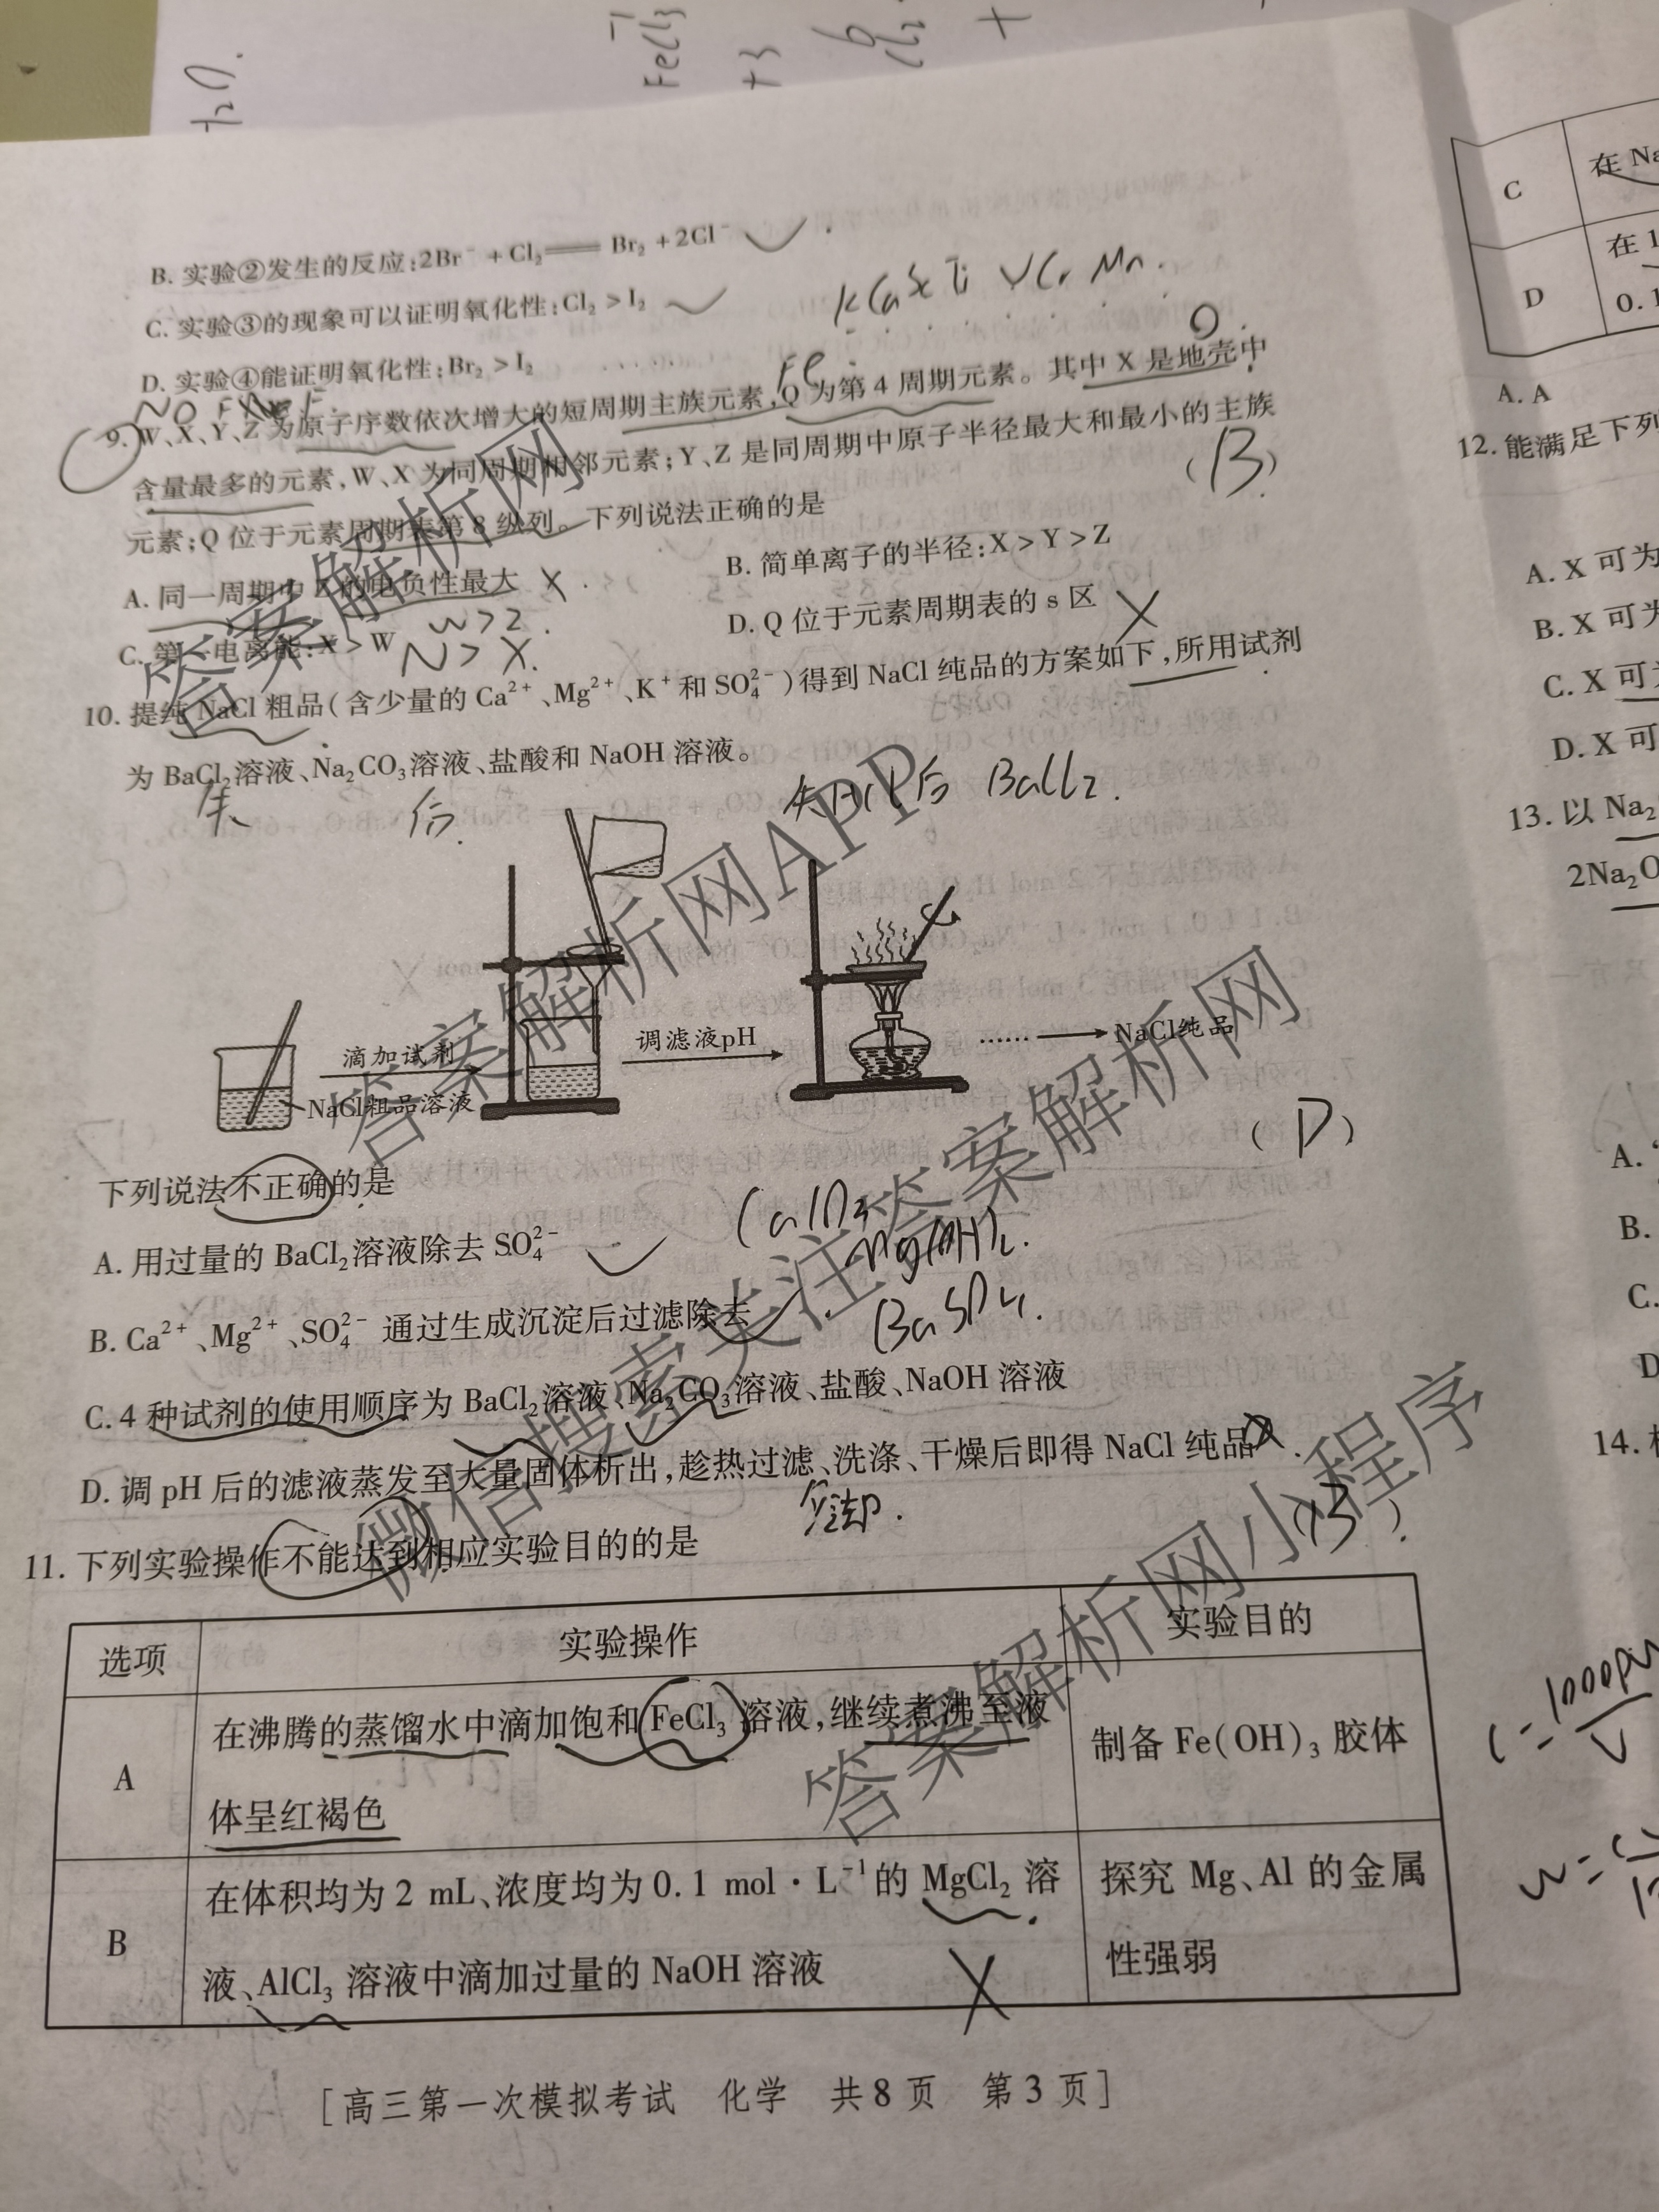 H₂O.
FeCl₃
+3
6
Cl₂
+
B. 实验②发生的反应:2Br⁻ + Cl₂══Br₂ + 2Cl⁻
C. 实验③的现象可以证明氧化性:Cl₂ > I₂
K Ca Sc Ti V Cr Mn.
D. 实验④能证明氧化性:Br₂ > I₂
Fe
O.
9. W、X、Y、Z 为原子序数依次增大的短周期主族元素,Q 为第 4 周期元素。其中 X 是地壳中
含量最多的元素,W、X 为同周期相邻元素;Y、Z 是同周期中原子半径最大和最小的主族
元素;Q 位于元素周期表第 8 纵列。下列说法正确的是
(B)
A. 同一周期中 Z 的电负性最大 ×
B. 简单离子的半径:X > Y > Z
C. 第一电离能:X > W
N > X.
D. Q 位于元素周期表的 s 区 ×
10. 提纯 NaCl 粗品(含少量的 Ca²⁺、Mg²⁺、K⁺和 SO₄²⁻)得到 NaCl 纯品的方案如下,所用试剂
为 BaCl₂溶液、Na₂CO₃溶液、盐酸和 NaOH 溶液。
后
后 BaCl₂.
滴加试剂
NaCl粗品溶液
调滤液pH
……
NaCl纯品
下列说法不正确的是
(D)
A. 用过量的 BaCl₂溶液除去 SO₄²⁻
Mg(OH)₂.
B. Ca²⁺、Mg²⁺、SO₄²⁻ 通过生成沉淀后过滤除去
BaSO₄.
C. 4 种试剂的使用顺序为 BaCl₂溶液、Na₂CO₃溶液、盐酸、NaOH 溶液
D. 调 pH 后的滤液蒸发至大量固体析出,趁热过滤、洗涤、干燥后即得 NaCl 纯品 ×
冷却.
11. 下列实验操作不能达到相应实验目的的是
(B)
选项 实验操作 实验目的
A 在沸腾的蒸馏水中滴加饱和 FeCl₃ 溶液,继续煮沸至液
体呈红褐色
制备 Fe(OH)₃ 胶体
B 在体积均为 2 mL、浓度均为 0.1 mol·L⁻¹的 MgCl₂ 溶
液、AlCl₃ 溶液中滴加过量的 NaOH 溶液
×
探究 Mg、Al 的金属
性强弱
[高三第一次模拟考试 化学 共 8 页 第 3 页]
C 在 Na
D 在 1
0.1
A. A
12. 能满足下列
A. X 可为
B. X 可为
C. X 可为
D. X 可
13. 以 Na₂
2Na₂O
A.
B.
C.
D
14.
答案解析网
答案解析网APP
微信搜索关注答案解析网
答案解析网小程序